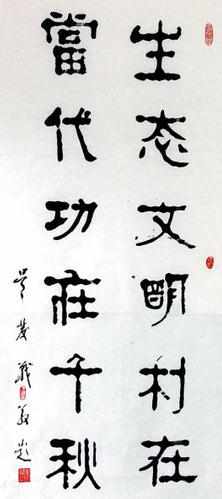 生态文明利在
當代功在千秋